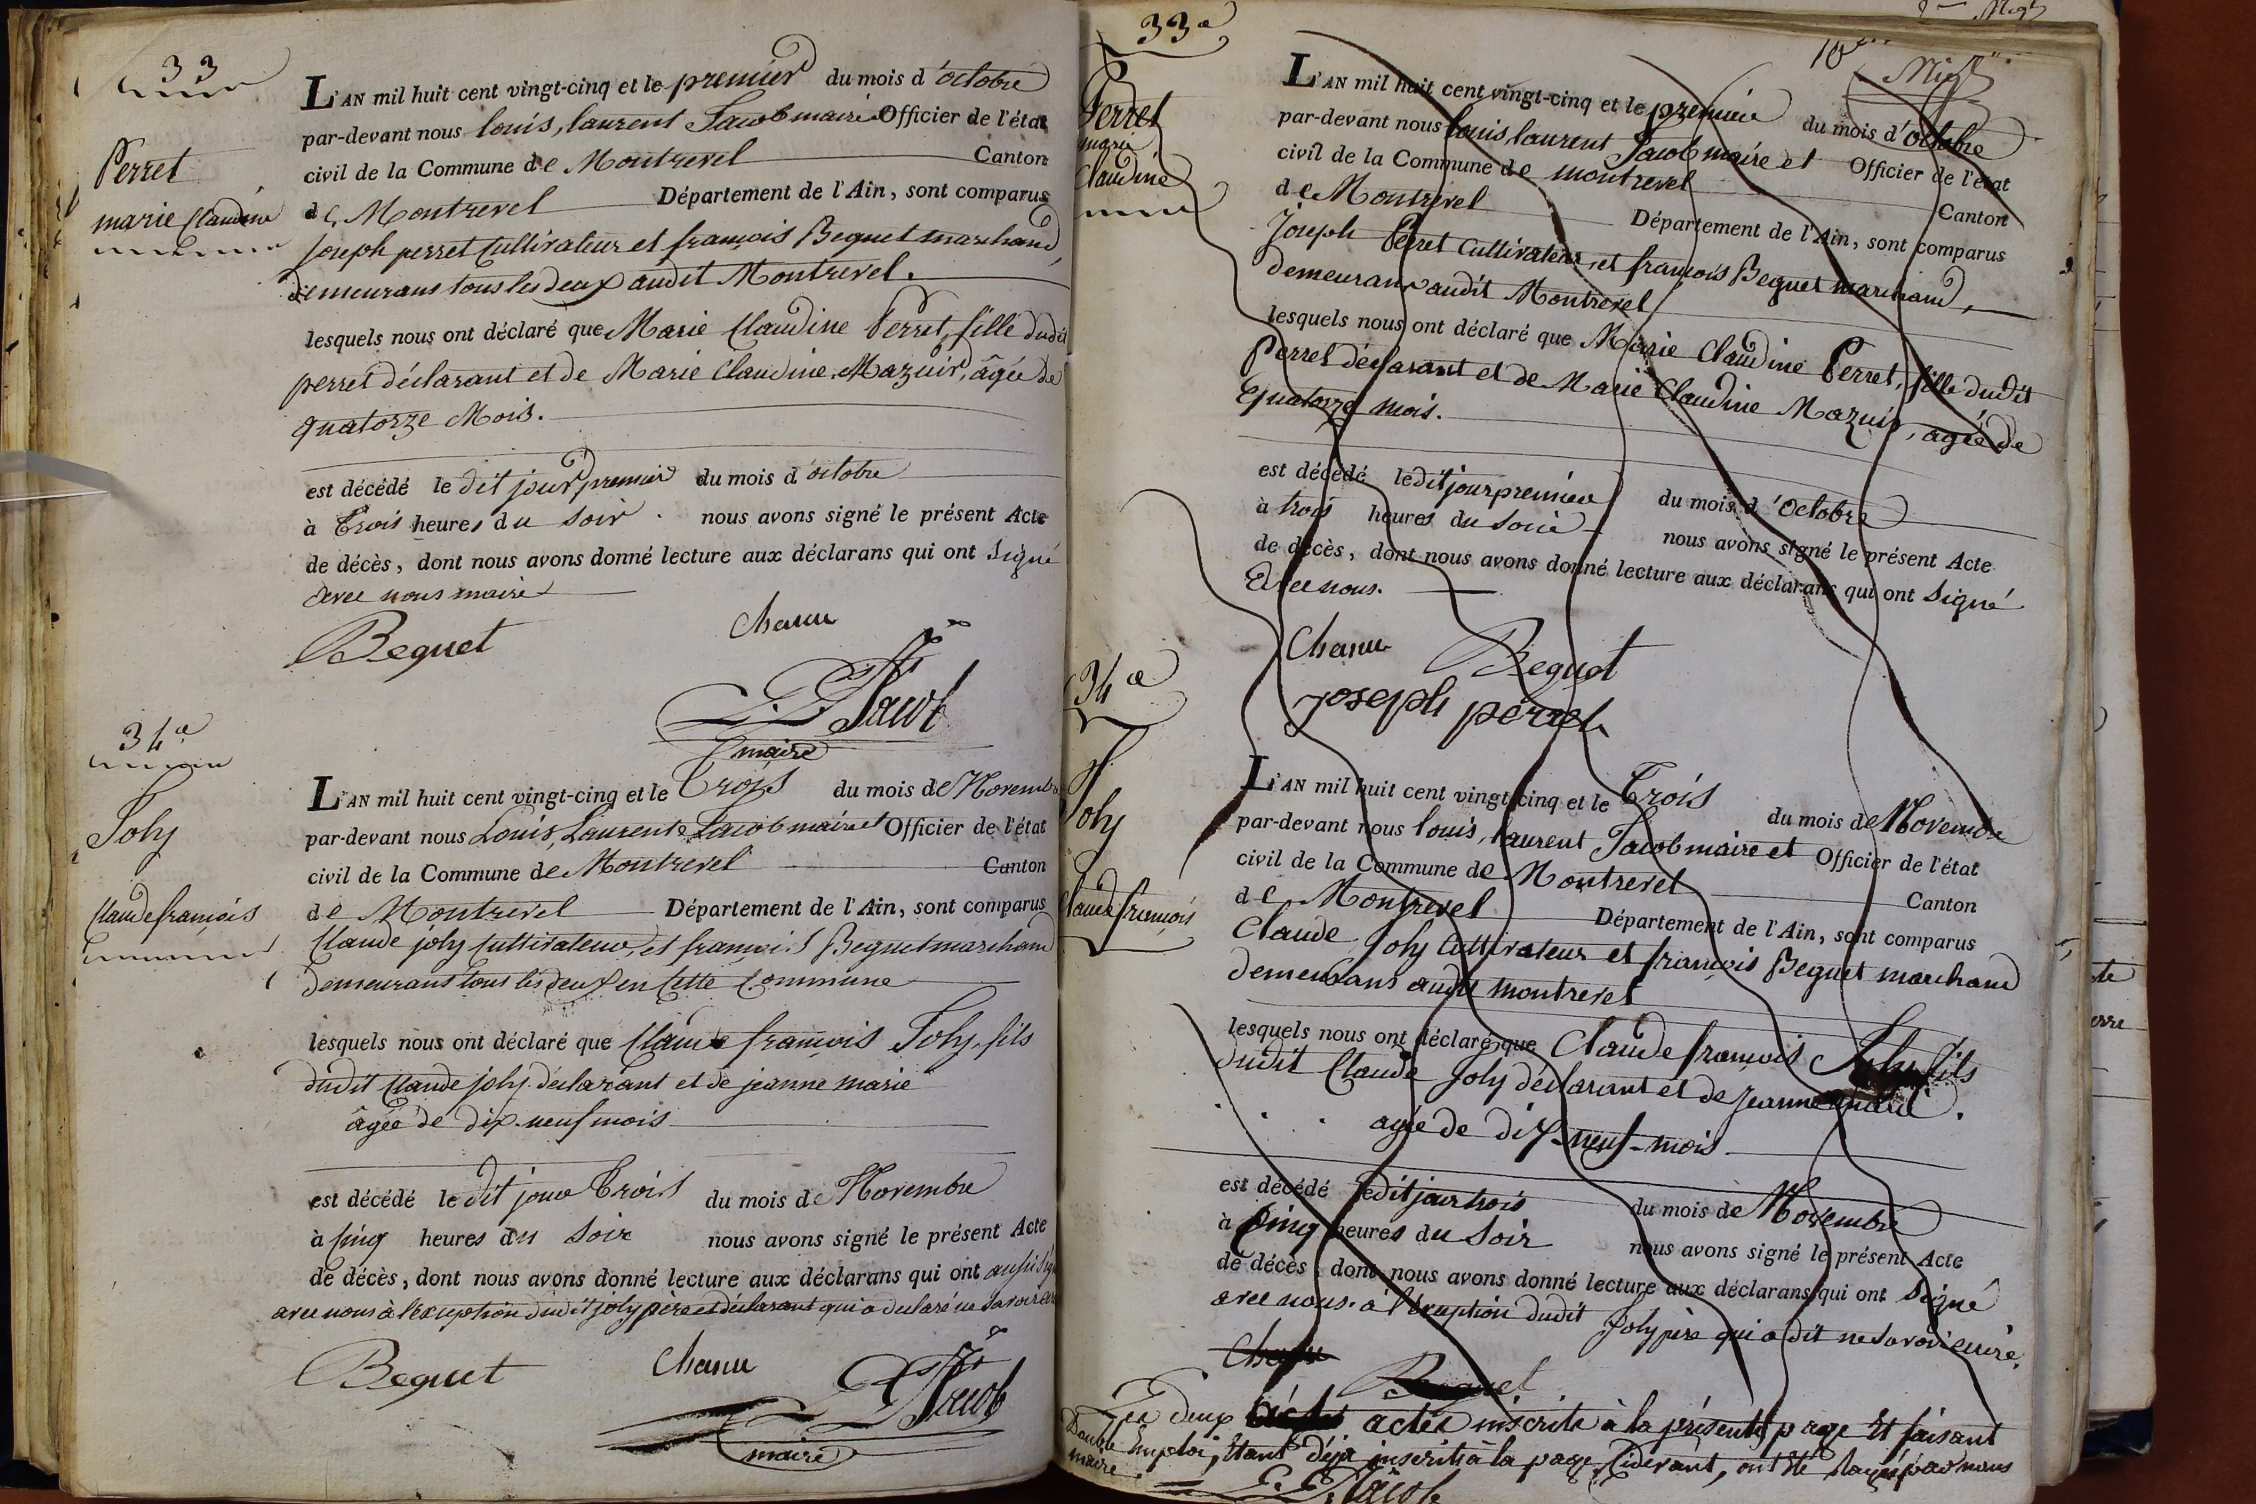 33
Perret
marie Claudine
L'AN mil huit cent vingt-cinq et le premier du mois d'octobre
par-devant nous louis, laurent Jacob maire Officier de l'état
civil de la Commune de Montrevel Canton
de Montrevel Département de l'Ain, sont comparus
Joseph perret Cultivateur et françois Beguet marchand,
demeurans tous les deux audit Montrevel.
lesquels nous ont déclaré que Marie Claudine Perret, fille dudit
perret déclarant et de Marie Claudine Mazuir, âgée de
quatorze Mois.
est décédé le dit jour premier du mois d'octobre
à Trois heures du soir. nous avons signé le présent Acte
de décès, dont nous avons donné lecture aux déclarans qui ont signé
avec nous maire
Beguet Chanu
L. L. Jacob
maire
34e
Joly
Claude françois
L'AN mil huit cent vingt-cinq et le Trois du mois de Novembre
par-devant nous Louis, Laurent Jacob maire et Officier de l'état
civil de la Commune de Montrevel Canton
de Montrevel Département de l'Ain, sont comparus
Claude joly Cultivateur, et françois Beguet marchand
demeurans tous les deux en Cette Commune
lesquels nous ont déclaré que Claude françois Joly, fils
dudit Claude joly déclarant et de jeanne marie
âgée de dix-neuf mois
est décédé le dit jour Trois du mois de Novembre
à Cinq heures du Soir nous avons signé le présent Acte
de décès, dont nous avons donné lecture aux déclarans qui ont aussi
avec nous à l'exception dudit joly père et déclarant qui a declaré ne savoir
Beguet Chanu L. L. Jacob
maire
33e
Perret
marie
Claudine
L'AN mil huit cent vingt-cinq et le premier du mois d'octobre
par-devant nous louis laurent Jacob maire et Officier de l'état
civil de la Commune de montrevel Canton
de Montrevel Département de l'Ain, sont comparus
Joseph Perret Cultivateur, et françois Beguet marchand,
demeurans audit Montrevel
lesquels nous ont déclaré que Marie Claudine Perret, fille dudit
Perret déclarant et de Marie Claudine Mazuir, agée de
Quatorze mois.
est décédé le dit jour premier du mois d'octobre
à trois heures du soir nous avons signé le présent Acte
de décès, dont nous avons donné lecture aux déclarans qui ont signé
avec nous.
Chanu Beguet
joseph perret
34e
Joly
Claude françois
L'AN mil huit cent vingt-cinq et le Trois du mois de Novembre
par-devant nous louis, laurent Jacob maire et Officier de l'état
civil de la Commune de Montrevel Canton
de Montrevel Département de l'Ain, sont comparus
Claude Joly Cultivateur et françois Beguet marchand
demeurans audit montrevel
lesquels nous ont déclaré que Claude françois Joly fils
dudit Claude Joly déclarant et de jeanne marie.
agée de dix-neuf-mois
est décédé le dit jour trois du mois de Novembre
à Cinq heures du Soir nous avons signé le présent Acte
de décès, dont nous avons donné lecture aux déclarans qui ont signé
avec nous. à l'exception dudit Joly père qui a dit ne savoir ecrire.
Chanu Beguet
Les deux actes inscrits à la présente page Et faisant
Double Emploi, étant déja inscrits à la page Cidevant, ont été rayés par nous
maire.
L. L. Jacob